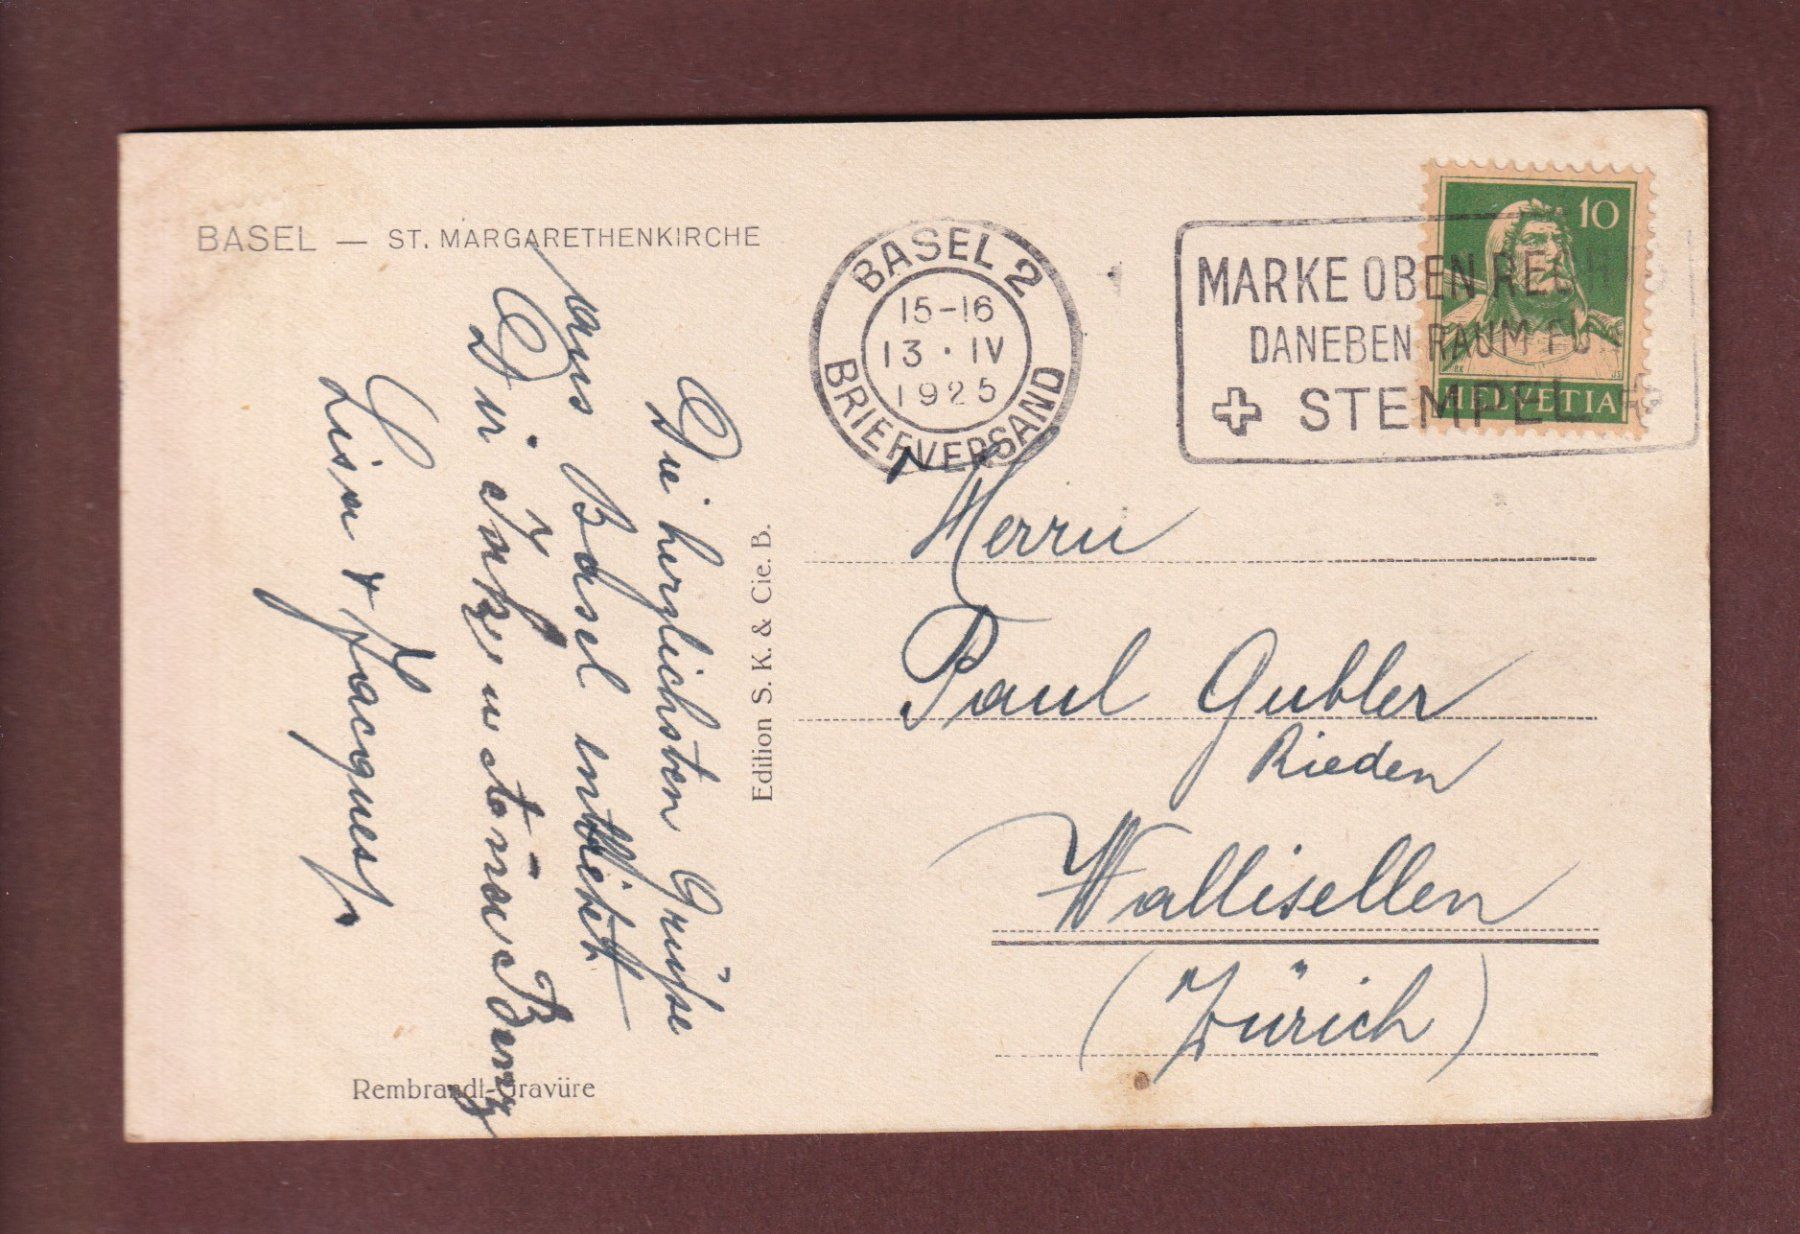 BASEL — ST. MARGARETHENKIRCHE
BASEL 2
15-16
13 · IV
1925
BRIEFVERSAND
MARKE OBEN RECH
DANEBEN RAUM FÜ
STEMPEL
10
HELVETIA
Die herzlichsten Grüße
aus Basel entbietet
Dir
Lisa & Jacques
Edition S. K. & Cie. B.
Herrn
Paul Gubler
Rieden
Wallisellen
(Zürich)
Rembrandt-Gravüre